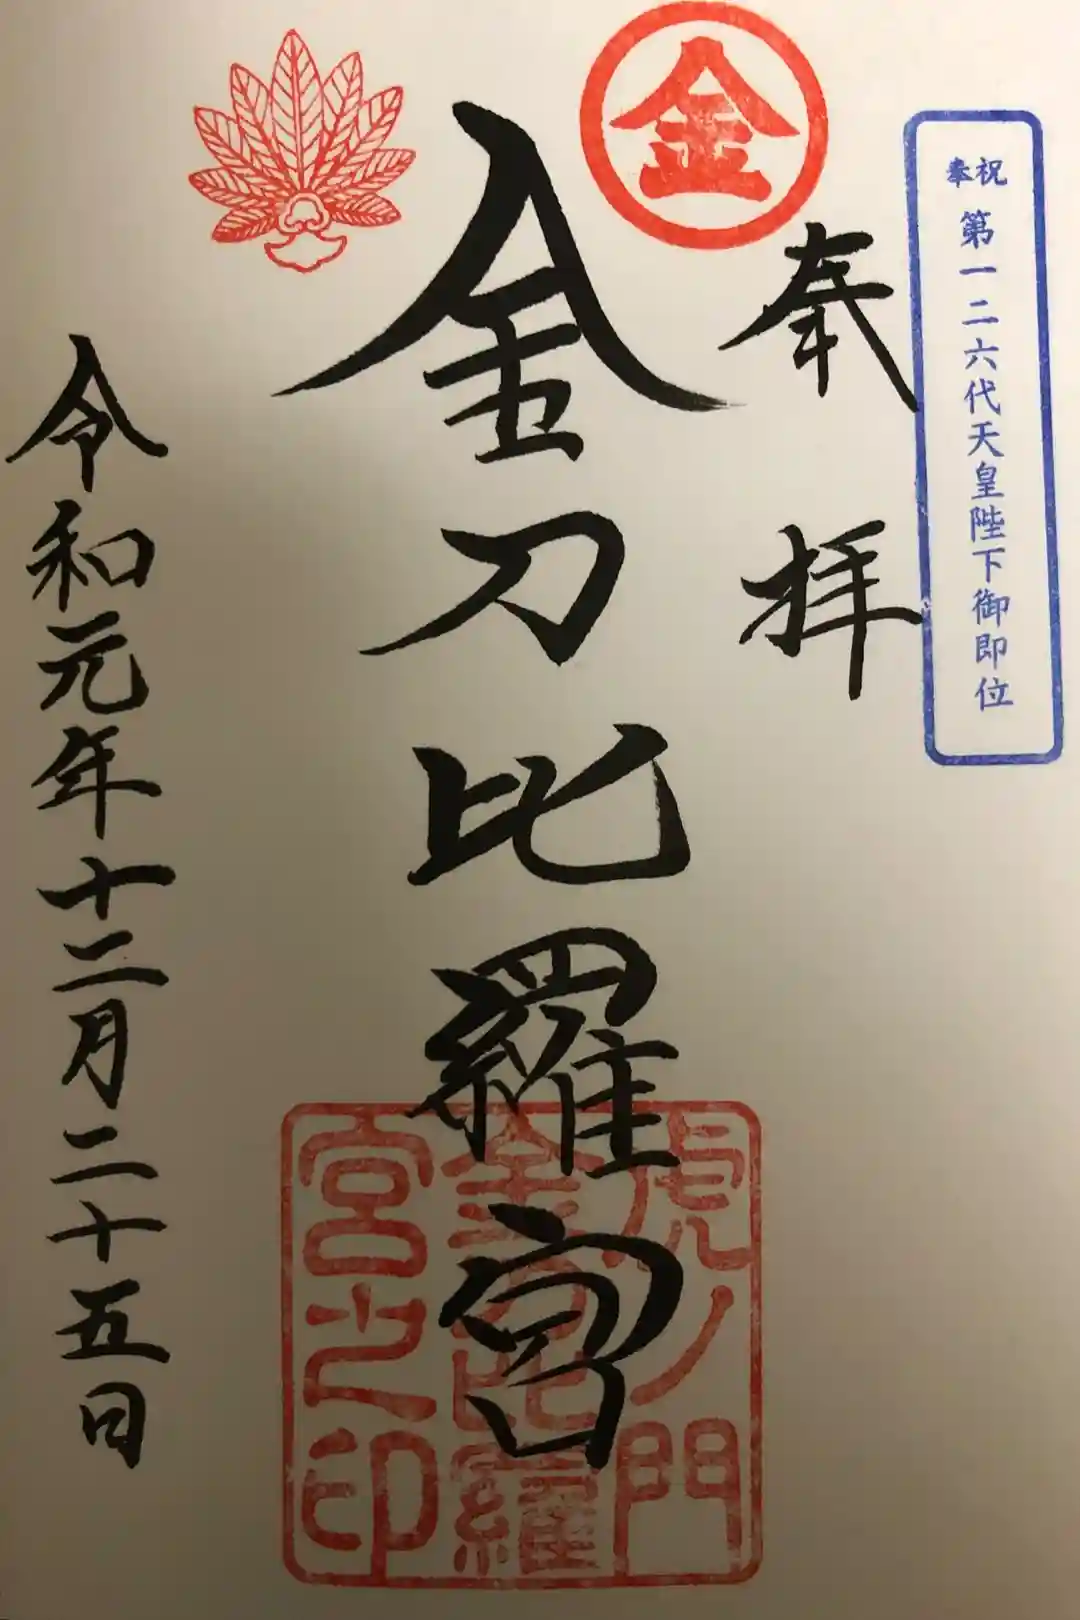 奉祝
第一二六代天皇陛下御即位
奉拝
金
金刀比羅宮
虎ノ門
金刀比羅
宮之印
令和元年十二月二十五日